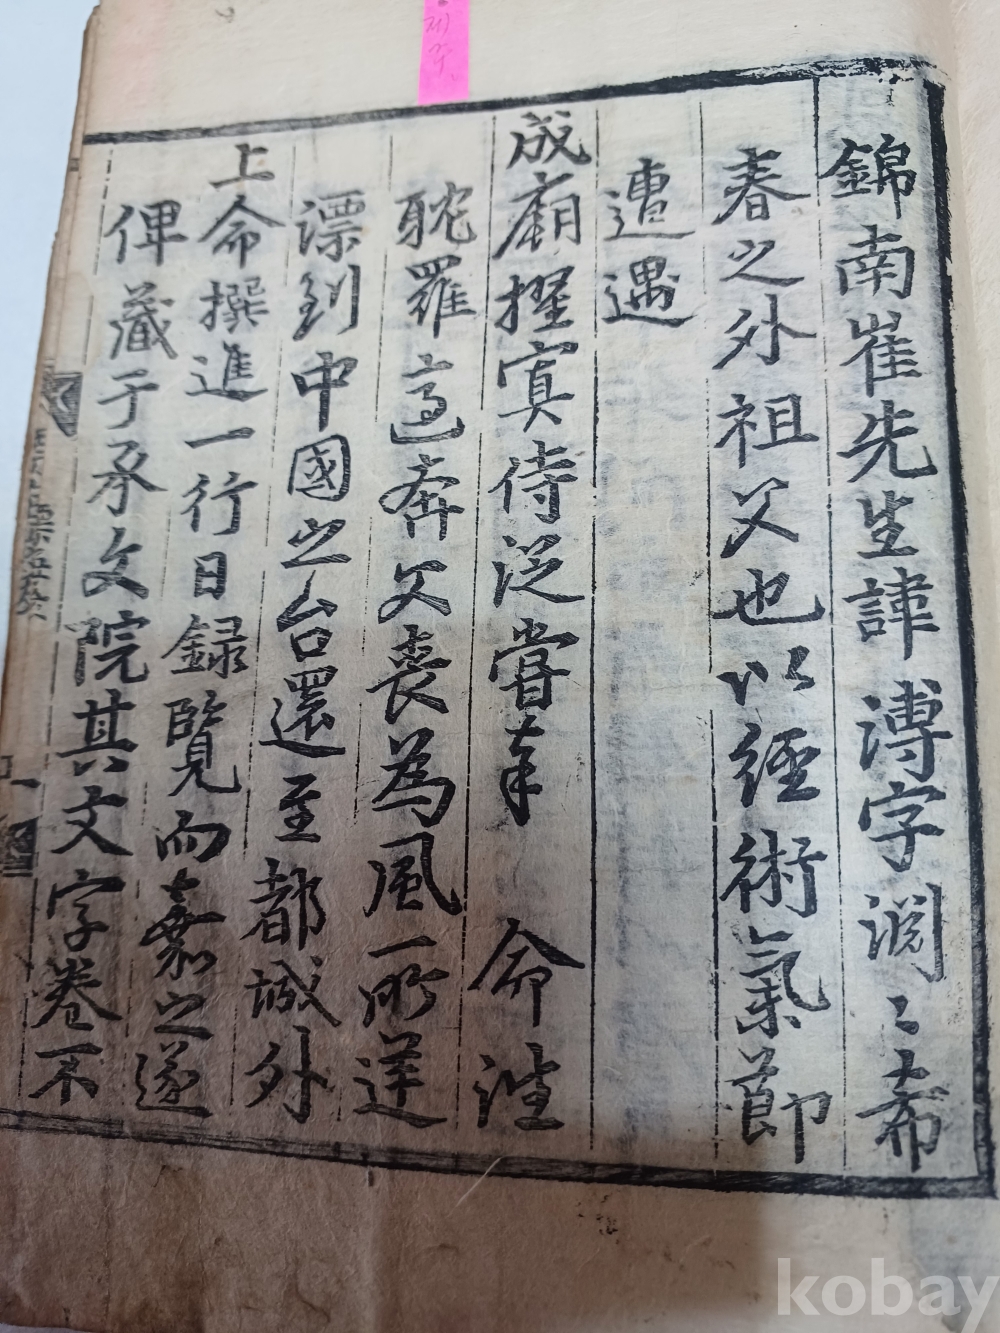 제주
錦南崔先生諱溥字淵〻希
春之外祖父也以經術氣節
遭遇
成廟擢寘侍從嘗奉 命往
耽羅高奔父喪爲風所逆
漂到中國之台還至都城外
上命撰進一行日録覽而嘉之遂
俾藏于承文院其文字卷不
kobay